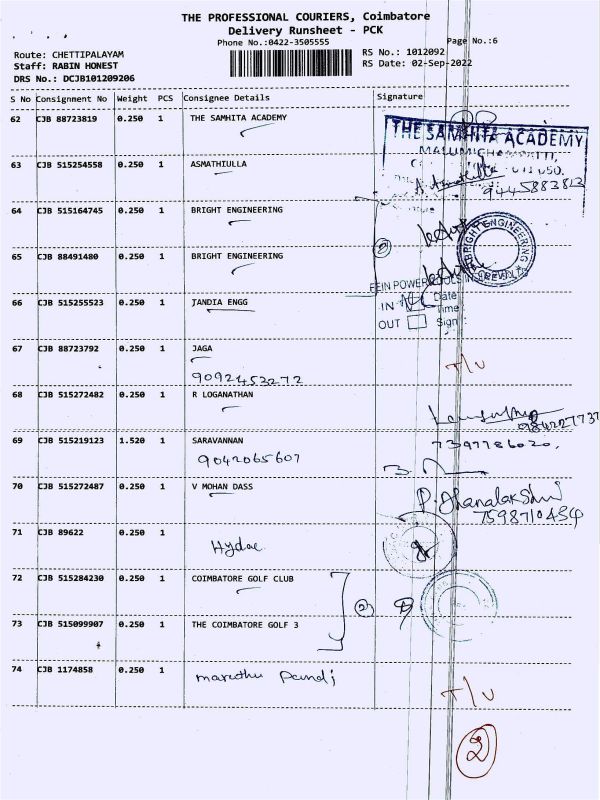 THE PROFESSIONAL COURIERS, Coimbatore
Delivery Runsheet - PCK
Phone No.:0422-3505555
Page No.:6
Route: CHETTIPALAYAM
RS No.: 1012092
Staff: RABIN HONEST
RS Date: 02-Sep-2022
DRS No.: DCJB101209206
S No Consignment No Weight PCS Consignee Details Signature
62 CJB 88723819 0.250 1 THE SAMHITA ACADEMY
THE SAMHITA ACADEMY
63 CJB 515254558 0.250 1 ASMATHIULLA
9445883813
64 CJB 515164745 0.250 1 BRIGHT ENGINEERING
BRIGHT ENGINEERING
65 CJB 88491480 0.250 1 BRIGHT ENGINEERING
66 CJB 515255523 0.250 1 JANDIA ENGG
IN Date
Time
OUT Sign
67 CJB 88723792 0.250 1 JAGA
9092453272
T/U
68 CJB 515272482 0.250 1 R LOGANATHAN
69 CJB 515219123 1.520 1 SARAVANNAN
7397786020.
9042065607
70 CJB 515272487 0.250 1 V MOHAN DASS
P. Dhanalakshmi
7598710434
71 CJB 89622 0.250 1
Hydac
72 CJB 515284230 0.250 1 COIMBATORE GOLF CLUB
2
73 CJB 515099907 0.250 1 THE COIMBATORE GOLF 3
74 CJB 1174858 0.250 1 maruthu Pandi
T/U
2